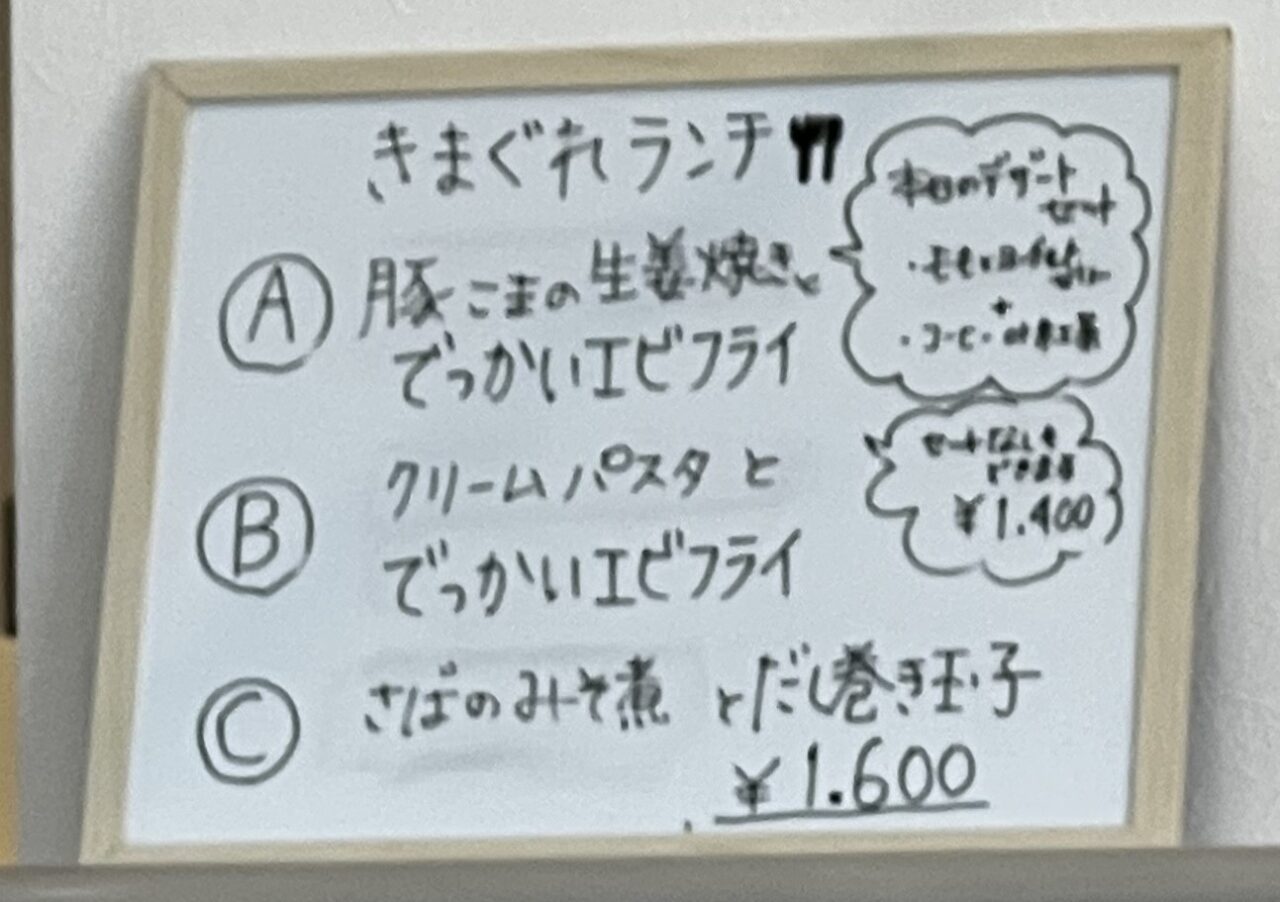 きまぐれランチ
A 豚こまの生姜焼きと
でっかいエビフライ
B クリームパスタと
でっかいエビフライ
C さばのみそ煮とだし巻き玉子
¥1.600
本日のデザート
セット
+
・コーヒー or 紅茶
セットなしも
できます
¥1.400